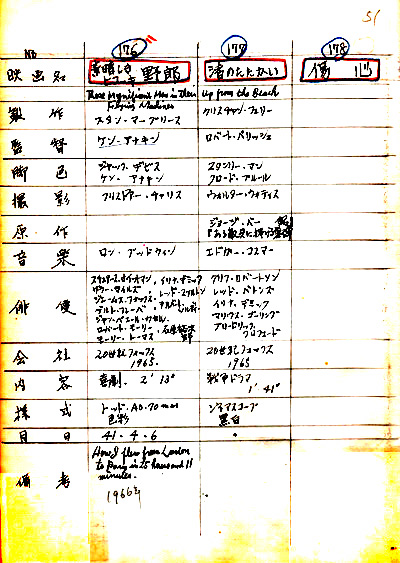 51
NO 176 177 178
映画名 素晴しき ヒコーキ 野郎 渚のたたかい 傷心
Those Magnificent Men in Their Flying Machines
Up from the Beach
製作 スタン・マーグリース クリスチャン・フェリー
監督 ケン・アナキン ロバート・パリッシュ
脚色 ジャック・デビス スタンリー・マン
ケン・アナキン クロード・ブルール
撮影 クリストファー・チャリス ウォルター・ウォティス
原作 ジョージ・バー
音楽 ロン・グッドウィン エドガー・コスマー
俳優 スチュアート・ホイットマン、イリナ・デミック クリフ・ロバートソン
サラー・マイルズ レッド・スケルトン レッド・バトンズ
ジェームス・フォックス、アルベルト・ソルディ イリナ・デミック
ゲルト・フレーベ マリウス・ゴーリング
ジャン・ピエール・カッセル ブロードリック・クロフォード
ロバート・モーリー・石原裕次郎
テリー・トーマス
会社 20世紀フォックス 20世紀フォックス
1965. 1965.
内容 喜劇. 2' 13" 戦争ドラマ
1' 41"
様式 トッド・AO・70mm シネマスコープ
色彩 黒白
月日 41・4・6
備考 How I flew from London
to Paris in 25 hours and 11
minutes.
1966年